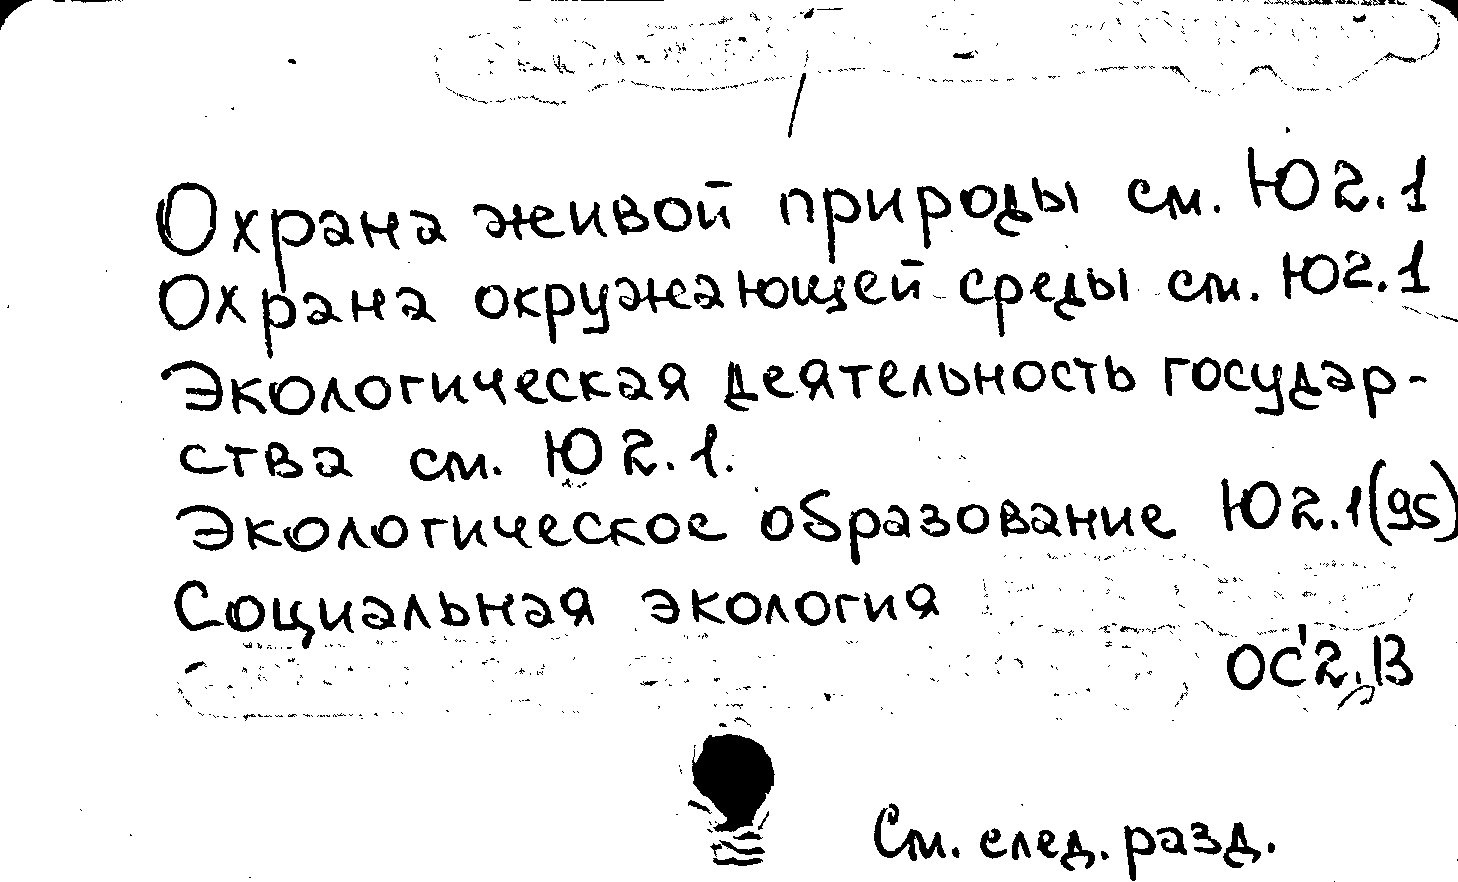 Охрана живой природы см. Ю2.1
Охрана окружающей среды см. Ю2.1
Экологическая деятельность государ-
ства см. Ю2.1.
Экологическое образование Ю2.1(95)
Социальная экология
ОС'2.В
См. след. разд.